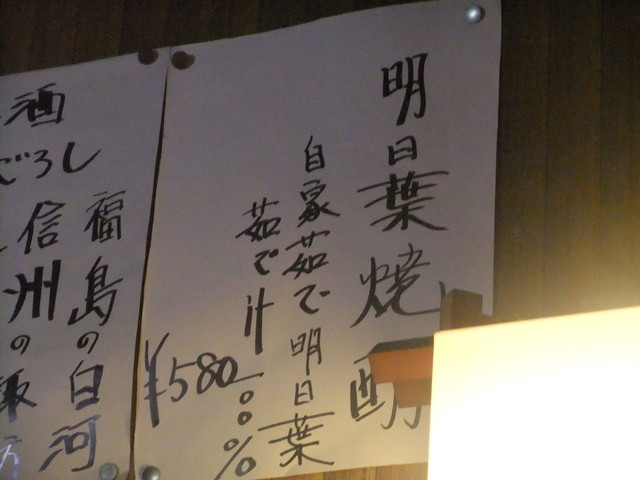 明日葉焼酎
自家茹で明日葉
茹で汁一〇〇%
¥580
酒
ごろし
福島の白河
信州の飯